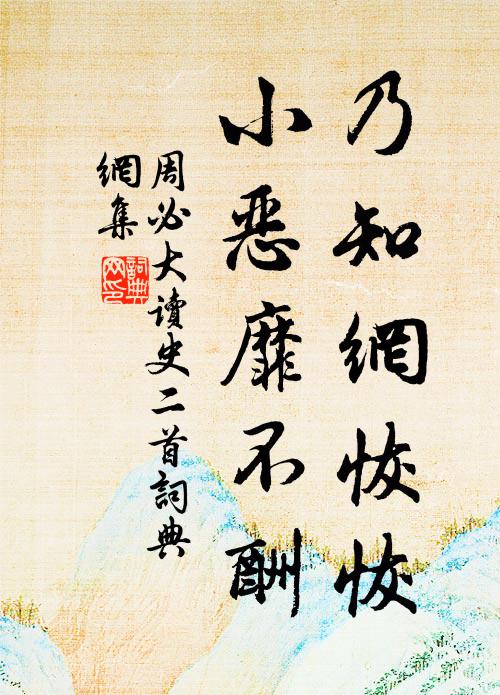 乃知網恢恢
小惡靡不酬
周必大讀史二首詞典
網集
詞典網印